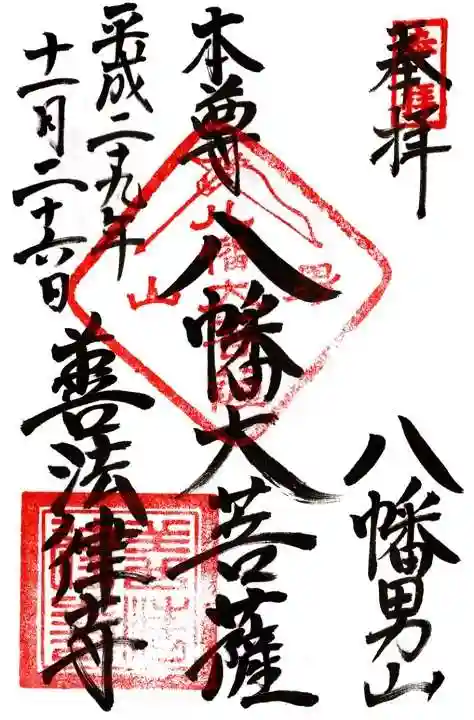 奉拝
八幡男山
本尊 八幡大菩薩
平成二十九年
十一月二十六日
善法律寺